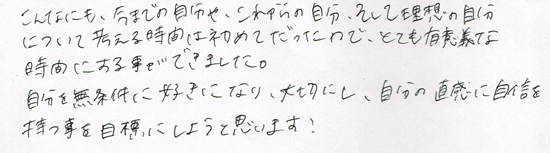 こんなにも、今までの自分や、これからの自分、そして理想の自分
について考える時間は初めてだったので、とても有意義な
時間にする事ができました。
自分を無条件に好きになり、大切にし、自分の直感に自信を
持つ事を目標にしようと思います!